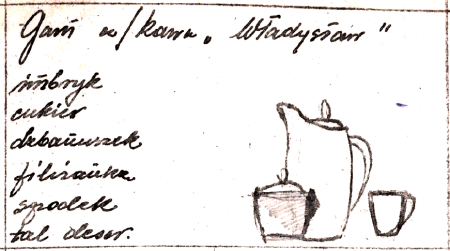 Garn a/kawa „Władysław"
imbryk
cukier
dzbanuszek
filiżanka
spodek
tal deser.